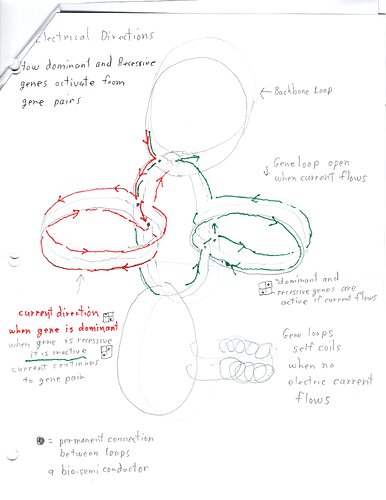 Electrical Directions
How dominant and Recessive
genes activate from
gene pairs
Backbone Loop
Gene loop open
when current flows
= dominant and
recessive genes are
active if current flows
current direction
when gene is dominant
when gene is recessive
it is inactive
current continues
to gene pair
Gene loops
self coils
when no
electric current
flows
= permanent connection
between loops
a bio-semi conductor